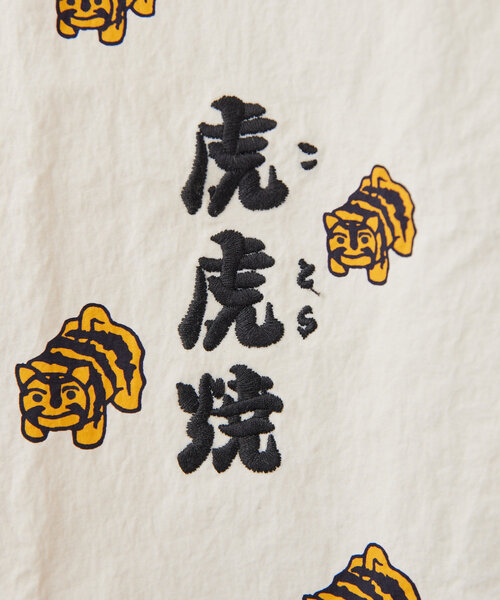 虎虎焼
ことら